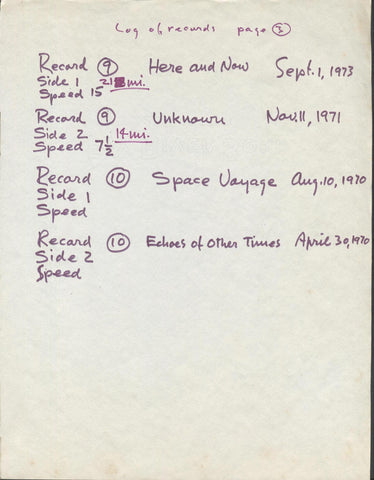 Log of records page 3
Record 9 Here and Now Sept. 1, 1973
Side 1 21 mi.
Speed 15
Record 9 Unknown Nov. 11, 1971
Side 2 14 mi.
Speed 7 1/2
Record 10 Space Voyage Aug. 10, 1970
Side 1
Speed
Record 10 Echoes of Other Times April 30, 1970
Side 2
Speed